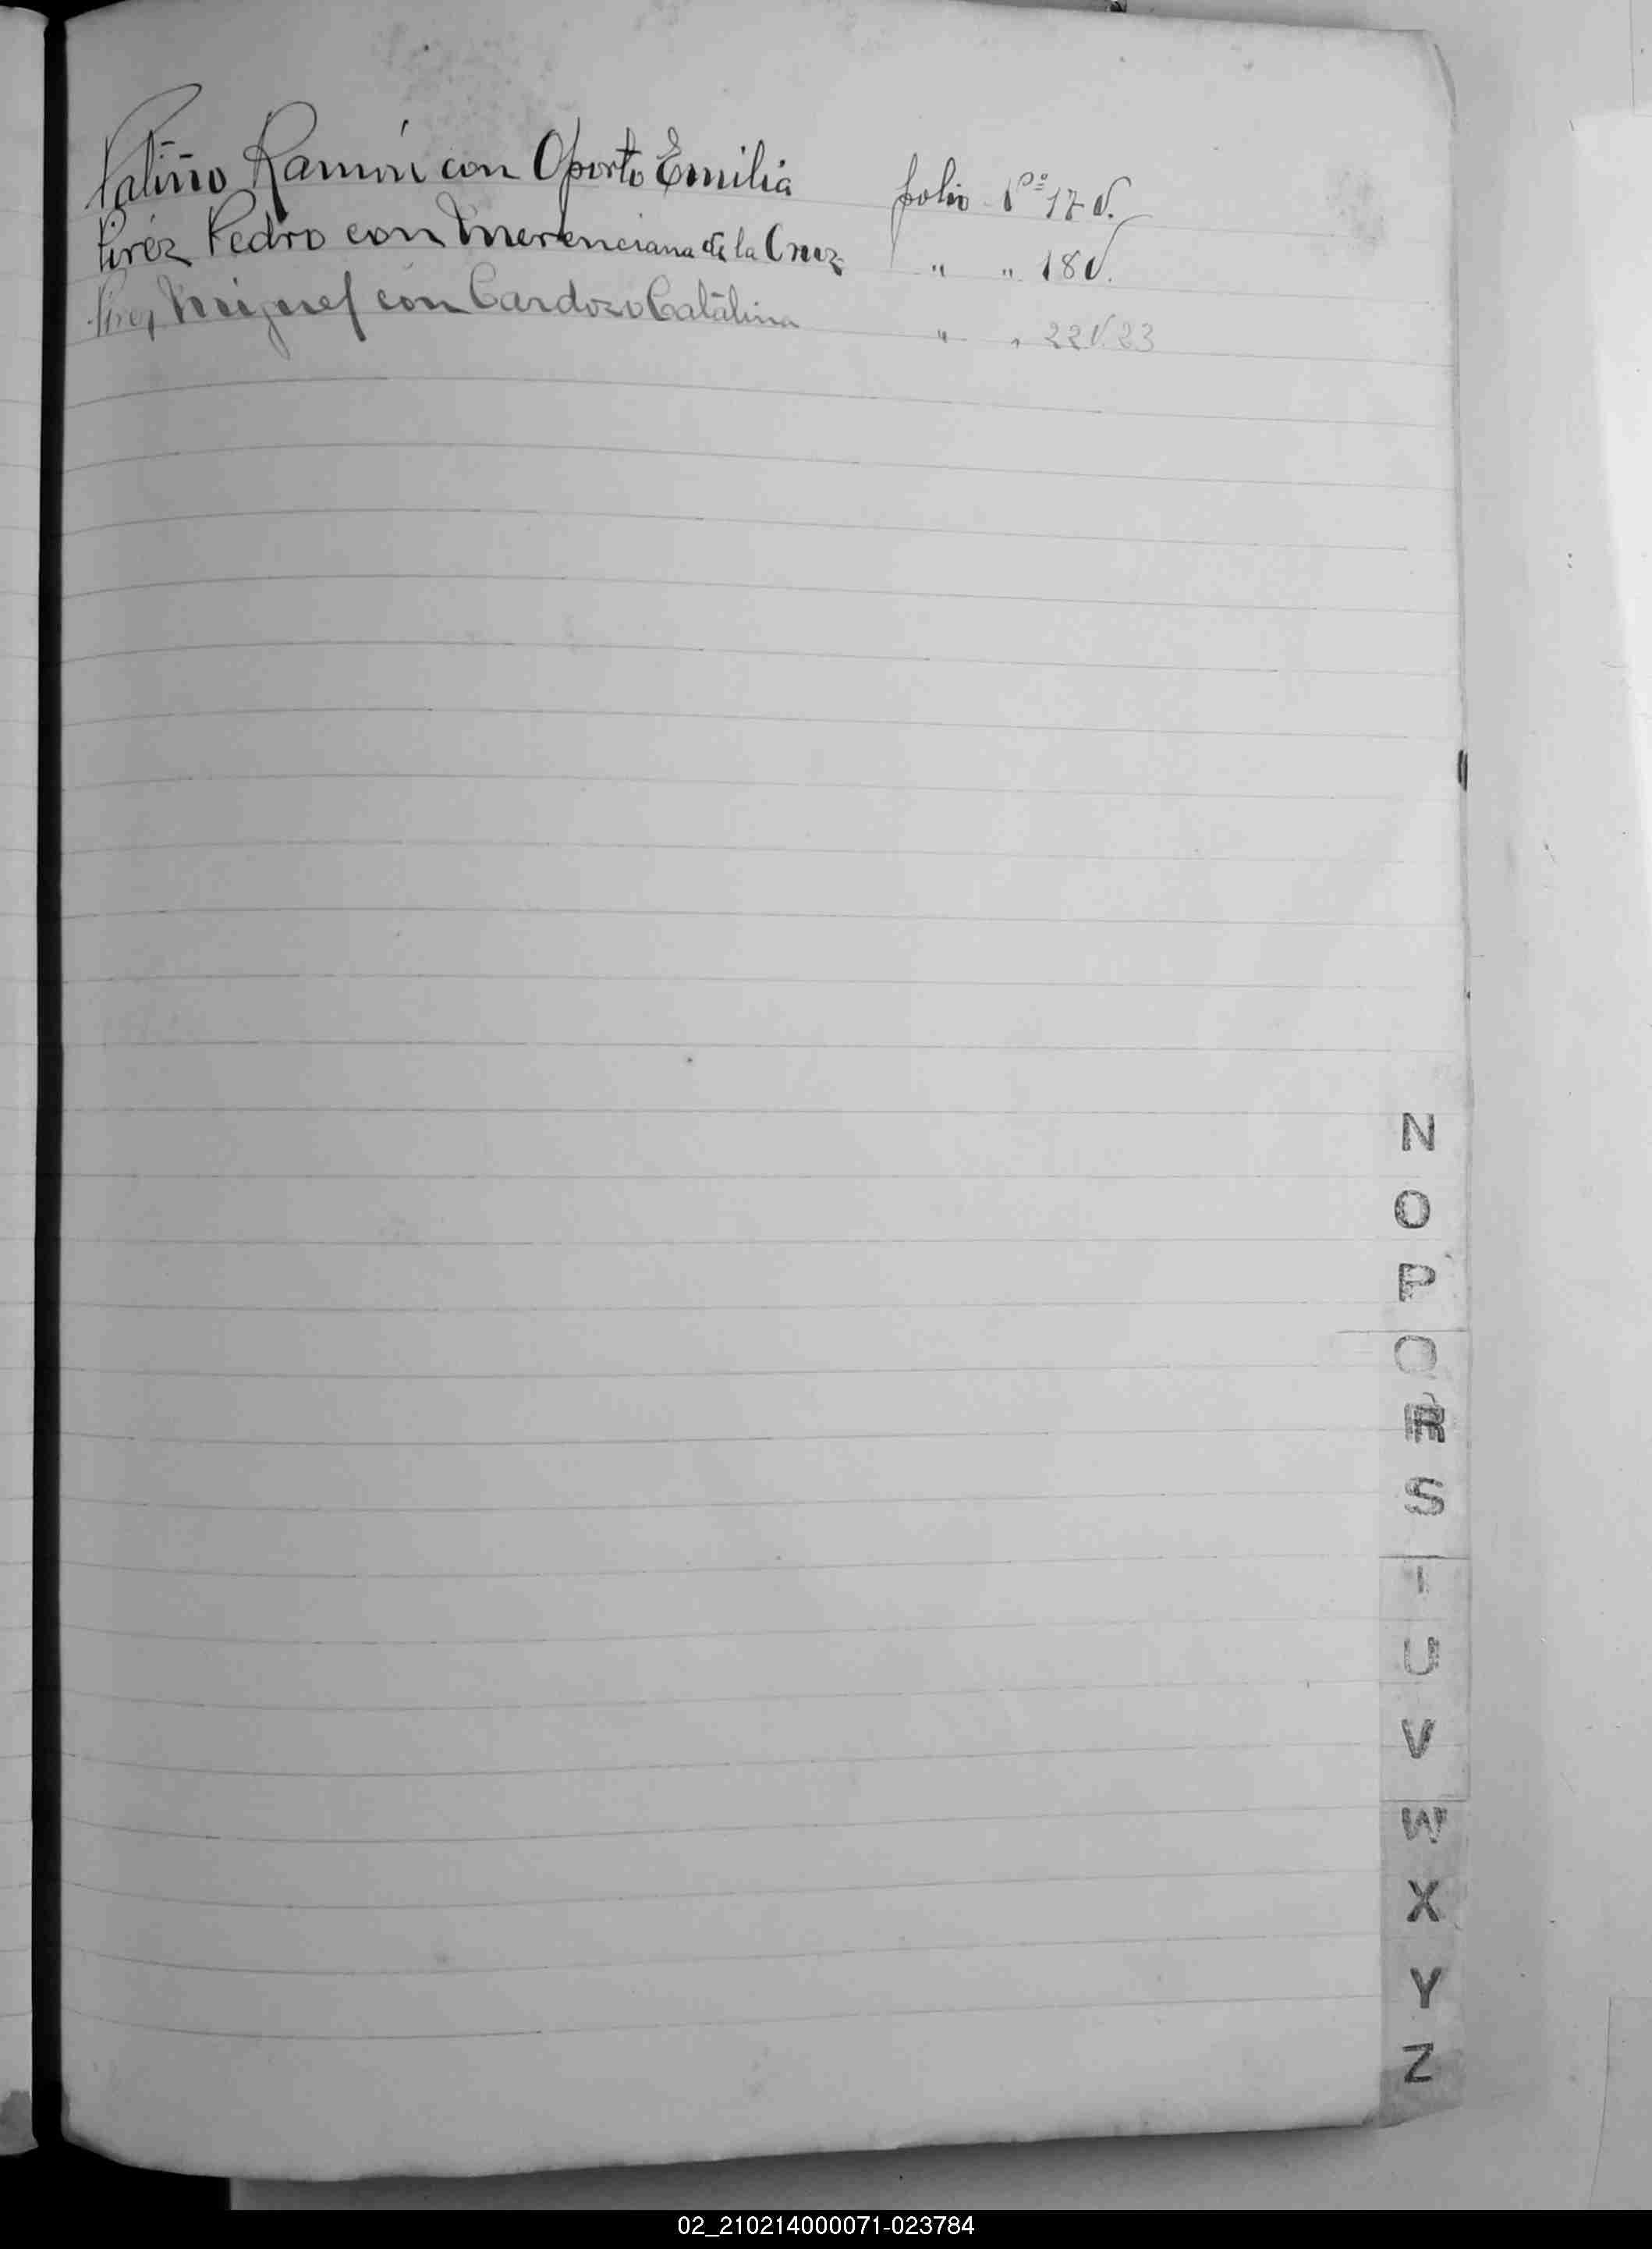 Patiño Ramón con Oporto Emilia folio Nº 17 V.
Pirez Pedro con Emerenciana de la Cruz " " 18 V.
Miguel con Cardozo Catalina " " 22 V. 23
N
O
P
Q
R
S
T
U
V
W
X
Y
Z
02_210214000071-023784